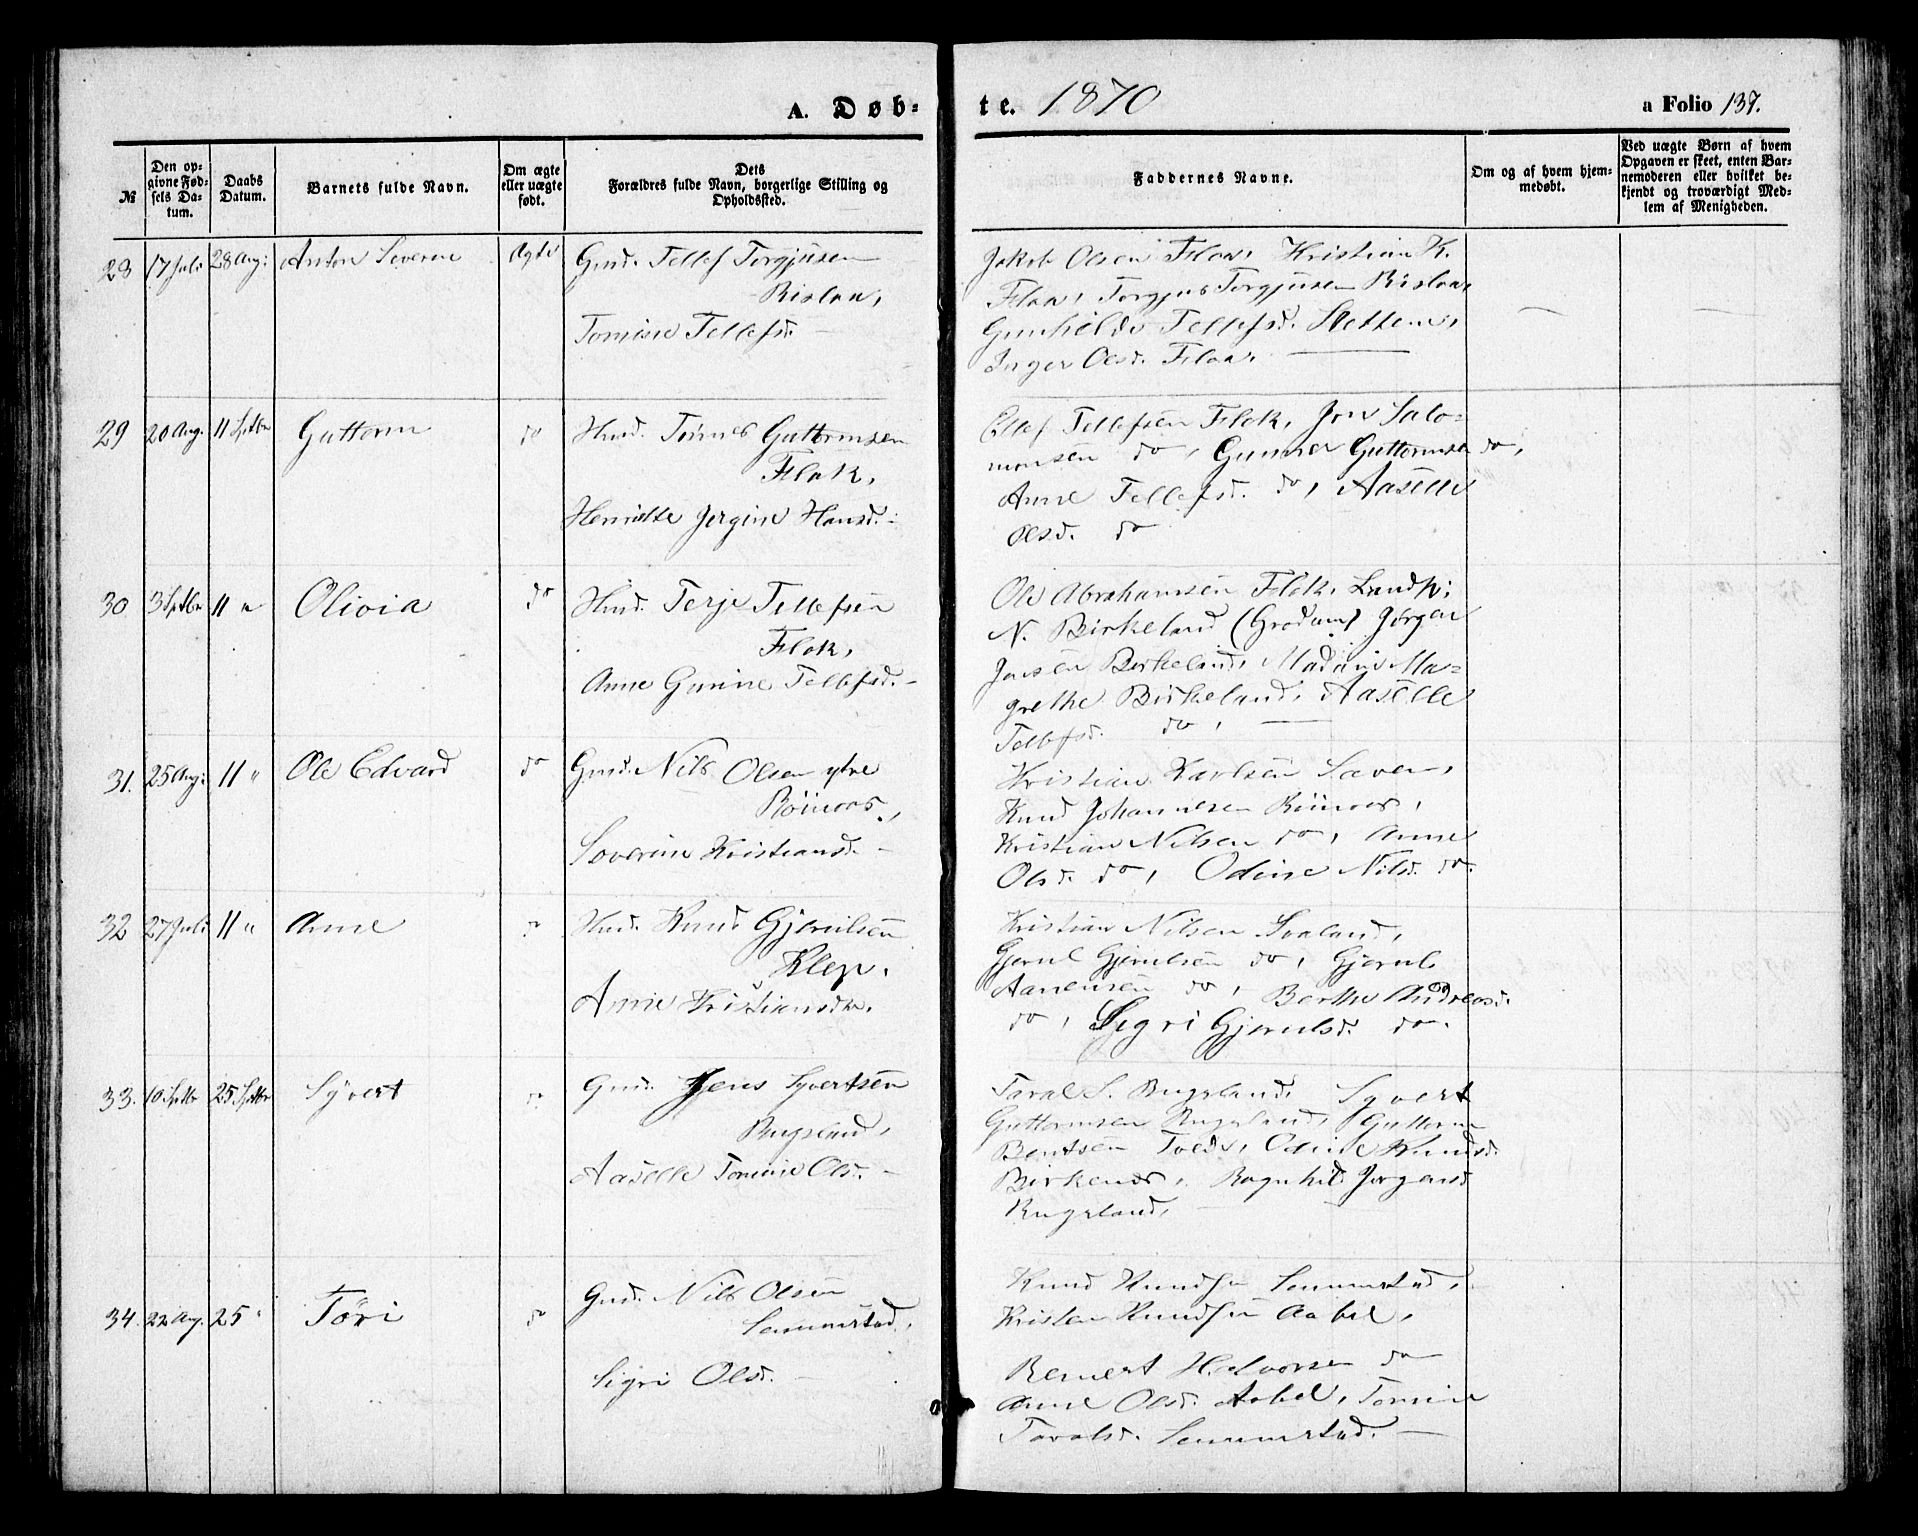 A. Døb-
te. 1870
a Folio 137.
№
Den op-
givne Fød-
sels Da-
tum.
Daabs
Datum.
Barnets fulde Navn.
Om ægte
eller uægte
født.
Dets
Forældres fulde Navn, borgerlige Stilling og
Opholdssted.
Faddernes Navne.
Om og af hvem hjem-
medøbt.
Ved uægte Børn af hvem
Opgaven er skeet, enten Bar-
nemoderen eller hvilket be-
kjendt og troværdigt Med-
lem af Menigheden.
28 17 Juli 28 Aug: Anton Severin Ægte Gmd. Tellef Torgjusen
Rislaa,
Tomine Tellefsd. —
Jakob Olsen Flaa, Kristian K.
Flaa, Torgjus Torgjusen Rislaa,
Gunhilde Tellefsd. Sletten,
Inger Olsd. Flaa. —
29 20 Aug. 11 Sptbr Guttorm do Husd. Tørres Guttormsen
Flak,
Henriette Jørgine Hansd. -
Ellef Tellefsen Flak, Jon Salo-
monsen do, Gunner Guttormsen do,
Anne Tellefsd. do, Aaselle
Olsd. do
30 3 Sptbr 11 " Olivia do Husd. Terje Tellefsen
Flak,
Anne Gurine Tellefsd. -
Ole Abrahamsen Flak, Landh:
N. Birkeland (Grødum) Jørgen
Jensen Birkeland, Madam Ma-
grethe Birkeland, Aaselle
Tellefsd. do, —
31. 25 Aug: 11 " Ole Edvard do Gmd. Nils Olsen ytre
Røinaas,
Soverine Kristiansd. -
Kristian Karlsen Saven,
Knud Johannesen Røinaas,
Kristian Nilsen do, Anne
Olsd. do, Odine Nilsd. do.
32 27 Juli 11 " Anne do Husd. Knud Gjerulsen
Klep.
Anne Kristiansdtr.
Kristian Nilsen Svaland,
Gjerul Gjerulsen do, Gjerul
Aanensen do, Berthe Andreasd.
do, Sigri Gjerulsd. do.
33. 10 Sptbr 25 Sptbr Syvert do Gmd. Jens Syvertsen
Rugsland,
Aaselle Tomine Olsd. -
Taral S. Rugsland, Syvert
Guttormsen Rugsland, Guttorm
Bentsen Tvede, Odine Knudsd.
Birkenes, Ragnhild Jørgensd
Rugsland,
34. 22 Aug. 25 " Tøri do Gmd. Nils Olsen
Senumstad,
Sigri Olsd. -
Knud Knudsen Senumstad,
Kristen Knudsen Aabel,
Bernert Halvorsen do
Anne Olsd. Aabel, Tomine
Taralsd. Senumstad. —